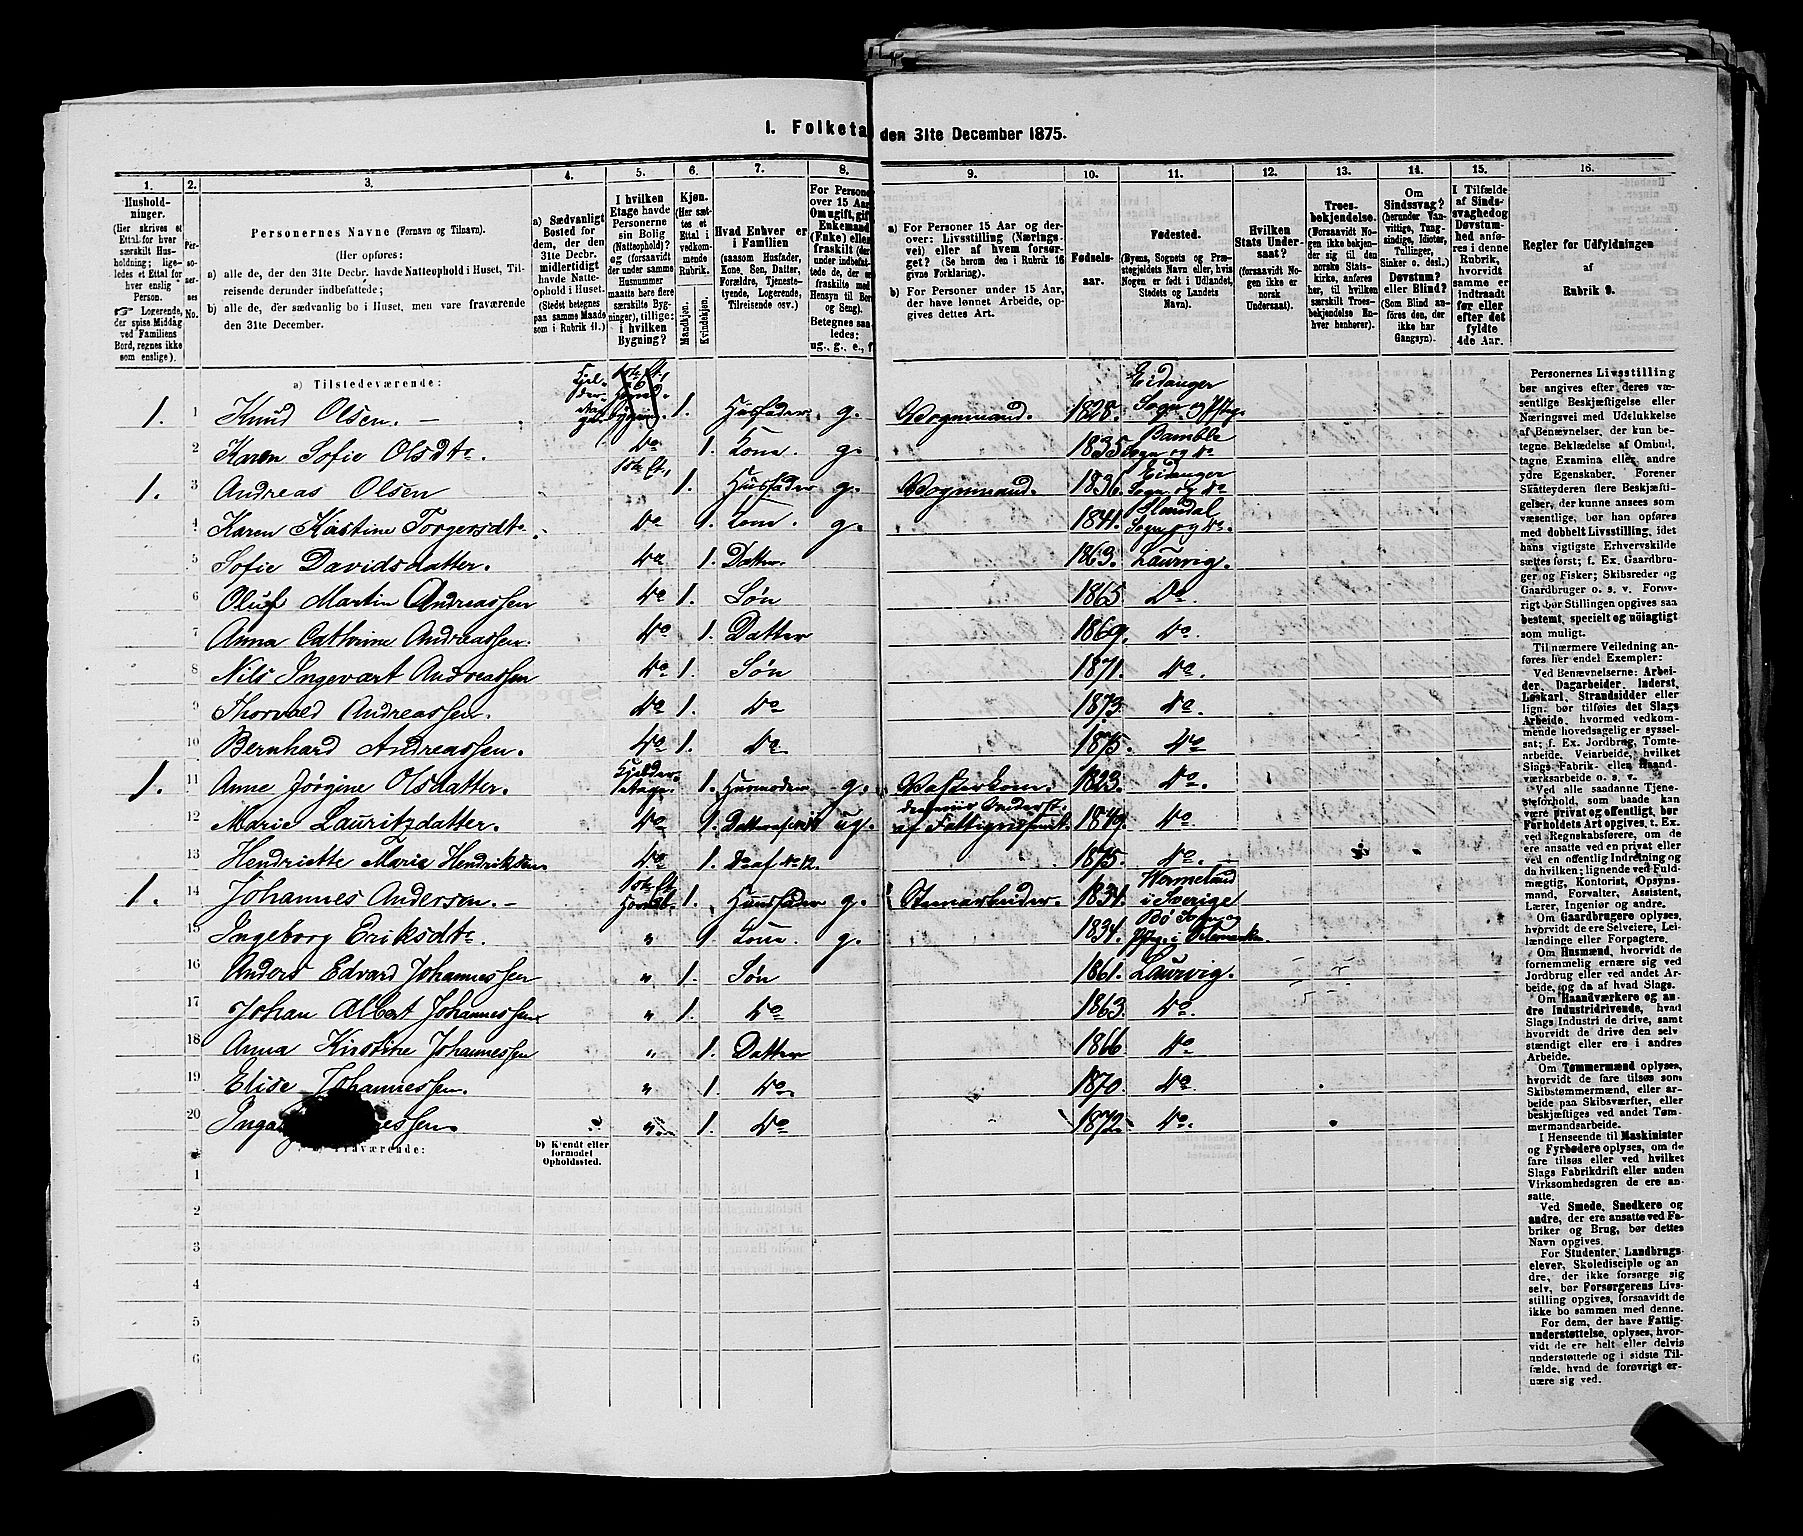 1. Folketa den 31te December 1875.
1. 2. 3. 4. 5. 6. 7. 8. 9. 10. 11. 12. 13. 14. 15. 16.
Hushold-
ninger.
(Her skrives et
Ettal for hver
særskilt Hus-
holdning; lige-
ledes et Ettal for
hver enslig
Person.
☞ Logerende,
der spise Middag
ved Familiens
Bord, regnes ikke
som enslige).
Per-
so-
nernes
No.
Personernes Navne (Fornavn og Tilnavn).
(Her opføres:
a) alle de, der den 31te Decbr. havde Natteophold i Huset, Til-
reisende derunder indbefattede;
b) alle de, der sædvanlig bo i Huset, men vare fraværende
den 31te December.
a) Sædvanligt
Bosted for
dem, der den
31te Decbr.
midlertidigt
havde Natte-
ophold i Huset.
(Stedet betegnes
paa samme Maade
som i Rubrik 11.)
I hvilken
Etage havde
Personerne
sin Bolig
(Natteophold)?
og (forsaavidt
der under samme
Husnummer
maatte høre flere
særskilte Byg-
ninger), tillige:
i hvilken
Bygning?
Kjøn.
(Her sæt-
tes et
Ettal i
vedkom-
mende
Rubrik.
Mandkjøn.
Kvindekjøn.
Hvad Enhver er
i Familien
(saasom Husfader,
Kone, Søn, Datter,
Forældre, Tjeneste-
tyende, Logerende,
Tilreisende osv.)
For Personer
over 15 Aar:
Om ugift, gift,
Enkemand
(Enke) eller
fraskilt (der-
under indbefatte-
de de, der ere
fraskilte med
Hensyn til Bord
og Seng).
Betegnes saa-
ledes:
ug., g., e., f
a) For Personer 15 Aar og der-
over: Livsstilling (Nærings-
vei) eller af hvem forsør-
get? (Se herom den i Rubrik 16
givne Forklaring).
b) For Personer under 15 Aar,
der have lønnet Arbeide, op-
gives dettes Art.
Fødsels-
aar.
Fødested.
(Byens, Sognets og Præ-
stegjeldets Navn eller, hvis
Nogen er født i Udlandet,
Stedets og Landets
Navn).
Hvilken
Stats Under-
saat?
(forsaavidt No-
gen ikke er
norsk
Undersaat).
Troes-
bekjendelse.
(Forsaavidt No-
gen ikke bekjen-
der sig til den
norske Stats-
kirke, anføres
her, til hvilken
særskilt Troes-
bekjendelse En-
hver henhører).
Om
Sindssvag?
(herunder Van-
vittige, Tung-
sindige, Idioter,
Tullinger,
Sinker o. desl.)
Døvstum?
eller Blind?
(Som Blind an-
føres den, der
ikke har
Gangsyn).
I Tilfælde
af Sinds-
svaghed og
Døvstum-
hed anfø-
res i denne
Rubrik,
hvorvidt
samme er
indtraadt
før eller
efter det
fyldte
4de Aar.
Regler for Udfyldningen
af
Rubrik 9.
a) Tilstedeværende:
1. 1 Knud Olsen. 1. Husfader. g. Vognmand. 1828. Eidanger Sogn og Pstg.
2 Karen Sofie Olsdtr. Do 1. Kone. g. 1835 Bamble Sogn og Do
1. 3 Andreas Olsen 1ste Et. 1. Husfader g. Vognmand. 1836. Eidanger Sogn og Do
4 Karen Kristine Torgersdtr. Do 1. Kone. g. 1841. Slemdal Sogn og Do.
5 Sofie Davidsdatter. Do 1. Datter. 1863. Laurvig.
6 Oluf Martin Andreassen Do 1. Søn 1865 Do.
7 Anna Cathrine Andreassen. Do 1. Datter 1869. Do
8 Nils Ingevart Andreassen Do 1. Søn 1871. Do
9 Thorvald Andreassen. Do 1. Do 1873. Do.
10 Bernhard Andreassen. Do 1. Do 1875. Do
1. 11 Anne Jørgine Olsdatter. Kjelder-etage. 1. Husmoder g. Vaskerkone. 1823. Do.
12 Marie Lauritzdatter. Do 1. ug. af Fattigv. 1849. Do.
13 Hendriette Maria Hendriksen Do 1. Do af No 12. 1875. Do.
1. 14 Johannes Anderson. 1ste Et. 1. Huusfader g. Stenarbeider. 1834. Vermeland i Sverige
15 Ingeborg Eriksdtr. " 1. Kone. g. 1834. Bø Sogn og Pstg. i Telemarken
16 Anders Edvard Johannessen " 1. Søn 1861. Laurvig.
17 Johan Albert Johannessen " 1. Do 1863. Do.
18 Anna Kirstine Johannessen " 1. Datter 1866. Do
19 Elise Johannessen. " 1. Do. 1870. Do
20 " 1. Do 1872. Do.
værende:
b) Kjendt eller
formodet
Opholdssted.
1
2
3
4
5
6
Personernes Livsstilling
bør angives efter deres væ-
sentlige Beskjæftigelse eller
Næringsvei med Udelukkelse
af Benævnelser, der kun be-
tegne Beklædelse af Ombud,
tagne Examina eller andre
ydre Egenskaber. Forener
Skatteyderen flere Beskjæfti-
gelser, der kunne ansees som
væsentlige, bør han opføres
med dobbelt Livsstilling, idet
hans vigtigste Erhvervskilde
sættes først; f. Ex. Gaardbru-
ger og Fisker; Skibsreder og
Gaardbruger o. s. v. Forøv-
rigt bør Stillingen opgives saa
bestemt, specielt og nøiagtigt
som muligt.
Til nærmere Veiledning an-
føres her endel Exempler:
Ved Benævnelserne: Arbei-
der, Dagarbeider, Inderst,
Løskarl, Strandsidder eller
lign. bør tilføies det Slags
Arbeide, hvormed vedkom-
mende hovedsagelig er syssel-
sat; f. Ex. Jordbrug, Tomte-
arbeide, Veiarbeide, hvilket
Slags Fabrik- eller Haand-
værksarbeide o. s. v.
Ved alle saadanne Tjene-
steforhold, som baade kan
være privat og offentligt, bør
Forholdets Art opgives, t. Ex.
ved Regnskabsførere, om de
ere ansatte ved en privat eller
ved en offentlig Indretning og
da hvilken; lignende ved Fuld-
mægtig, Kontorist, Opsyns-
mand, Forvalter, Assistent,
Lærer, Ingeniør og andre.
Om Gaardbrugere oplyses,
hvorvidt de ere Selveiere, Lei-
lændinge eller Forpagtere.
Om Husmænd, hvorvidt de
fornemmelig ernære sig ved
Jordbrug eller ved andet Ar-
beide, og da af hvad Slags.
Om Haandværkere og an-
dre Industridrivende, hvad
Slags Industri de drive, samt
hvorvidt de drive den selv-
stændigt eller ere i andres
Arbeide.
Om Tømmermænd oplyses,
hvorvidt de fare tilsøs som
Skibstømmermænd, eller ar-
beide paa Skibsværfter, eller
beskjæftiges ved andet Tøm-
mermandsarbeide.
I Henseende til Maskinister
og Fyrbødere oplyses, om de
fare tilsøs eller ved hvilket
Slags Fabrikdrift eller anden
Virksomhedsgren de ere an-
satte.
Ved Smede, Snedkere og
andre, der ere ansatte ved Fa-
briker og Brug, bør dettes
Navn opgives.
For Studenter, Landbrugs-
elever, Skoledisciple og an-
dre, der ikke forsørge sig
selv, bør Forsørgerens Livs-
stilling opgives, forsaavidt de
ikke bo sammen med denne.
For dem, der have Fattig-
understøttelse, oplyses, hvor-
vidt de ere helt eller delvis
understøttede og i sidste Til-
fælde, hvad de forøvrigt er-
nære sig ved.